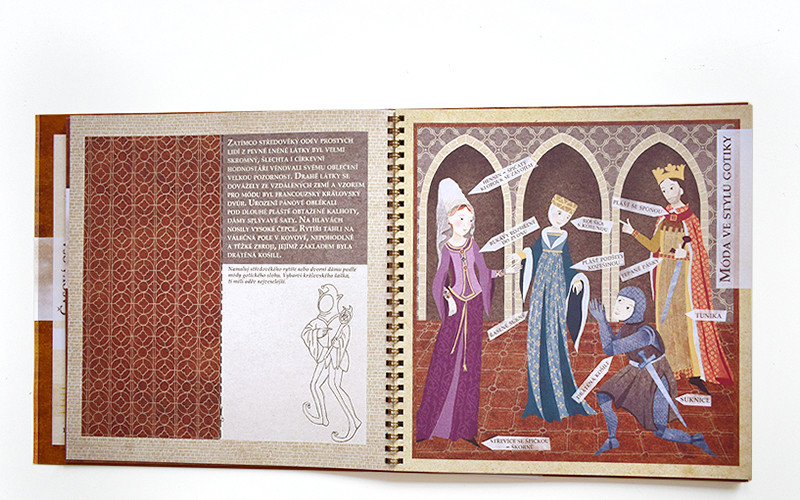 Zatímco středověký oděv prostých
lidí z pevné lněné látky byl velmi
skromný, šlechta i církevní
hodnostáři věnovali svému oblečení
velkou pozornost. Drahé látky se
dovážely ze vzdálených zemí a vzorem
pro módu byl francouzský královský
dvůr. Urození pánové oblékali
pod dlouhé pláště obtažené kalhoty,
dámy splývavé šaty. Na hlavách
nosily vysoké čepce. Rytíři táhli na
válečná pole v kovové, nepohodlné
a těžké zbroji, jejímž základem byla
drátěná košile.
Namaluj středověkého rytíře nebo dvorní dámu podle
módy gotického slohu. Vybarvi královského šaška,
ti měli oděv nejveselejší.
MÓDA VE STYLU GOTIKY
HENNIN – ŠPIČATÝ
KLOBOUK SE ZÁVOJEM
RUKÁVY ROZŠÍŘENÉ
DO ZVONU
ROUŠKA
S KORUNOU
PLÁŠŤ SE SPONOU
PLÁŠŤ PODŠITÝ
KOŽEŠINOU
TEPANÉ PÁSKY
ŘASENÉ SUKNĚ
TUNIKA
DRÁTĚNÁ KOŠILE
SUKNICE
STŘEVÍCE SE ŠPIČKOU
= ŠKORNĚ